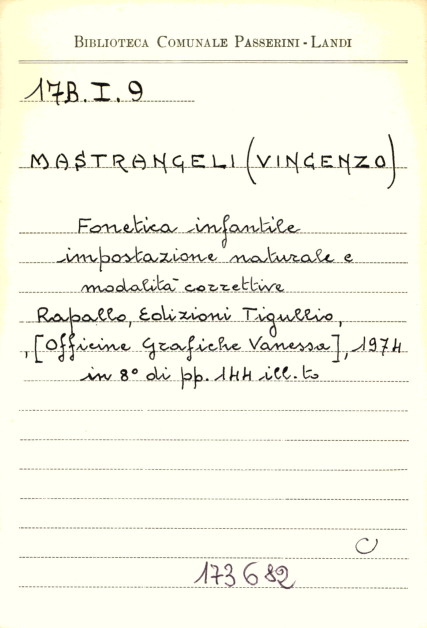 BIBLIOTECA COMUNALE PASSERINI - LANDI
17B. I. 9
MASTRANGELI (VINCENZO)
Fonetica infantile
impostazione naturale e
modalità correttive
Rapallo, Edizioni Tigullio,
, [Officine Grafiche Vanessa], 1974
in 8° di pp. 144 ill.to
C
173682